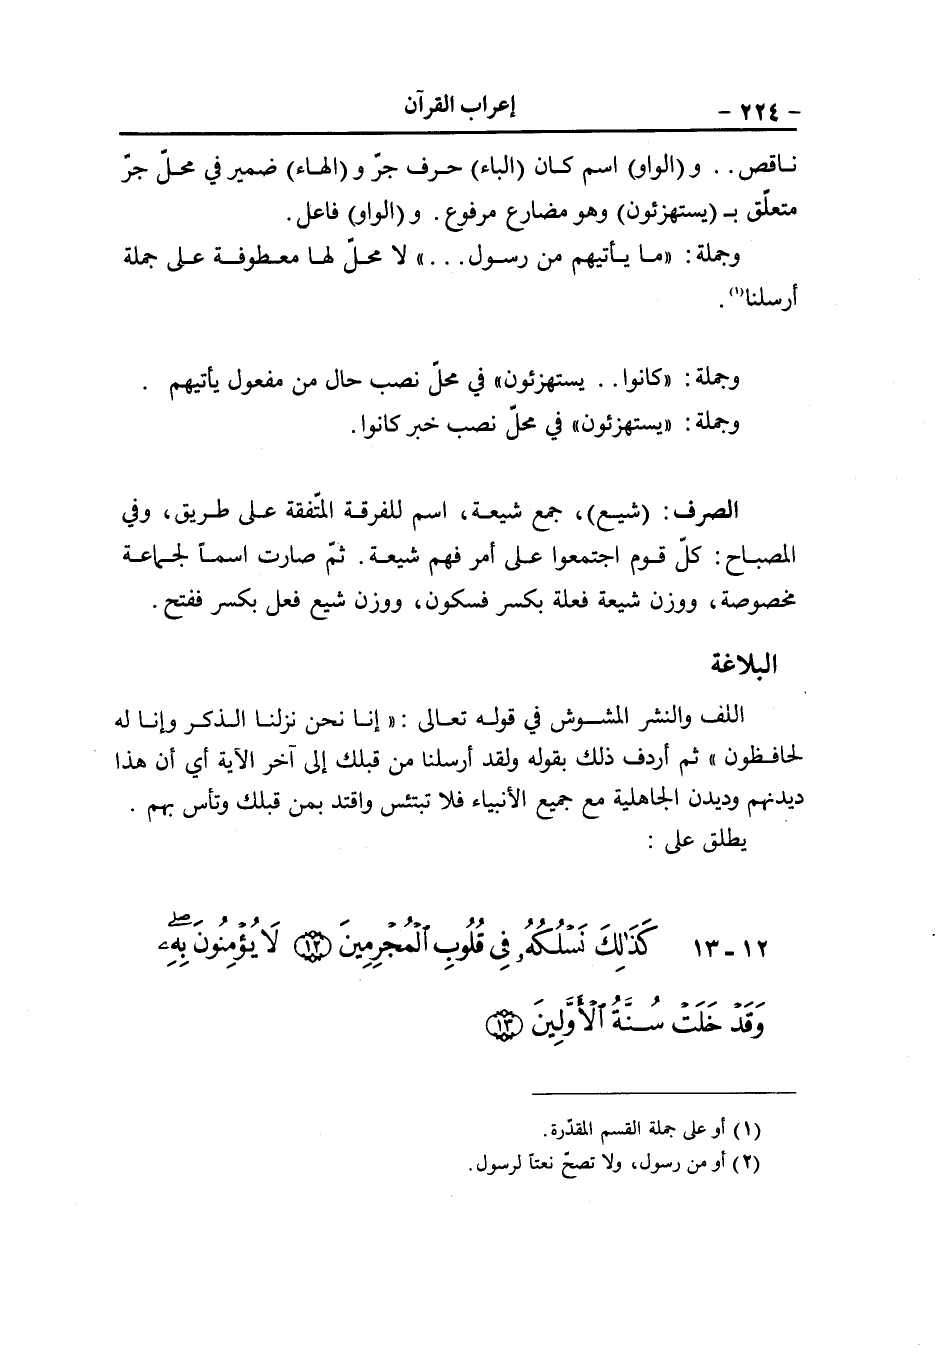 - ٢٢٤ -
إعراب القرآن
ناقص.. و (الواو) اسم كان (الباء) حرف جرّ و (الهاء) ضمير في محلّ جرّ
متعلّق بـ (يستهزئون) وهو مضارع مرفوع. و (الواو) فاعل.
وجملة: «ما يأتيهم من رسول...» لا محلّ لها معطوفة على جملة
أرسلنا(١).
وجملة: «كانوا.. يستهزئون» في محلّ نصب حال من مفعول يأتيهم .
وجملة: «يستهزئون» في محلّ نصب خبر كانوا.
الصرف: (شيع)، جمع شيعة، اسم للفرقة المتّفقة على طريق، وفي
المصباح: كلّ قوم اجتمعوا على أمر فهم شيعة. ثمّ صارت اسماً لجماعة
مخصوصة، ووزن شيعة فعلة بكسر فسكون، ووزن شيع فعل بكسر ففتح.
البلاغة
اللف والنشر المشوش في قوله تعالى :« إنا نحن نزلنا الذكر وإنا له
لحافظون » ثم أردف ذلك بقوله ولقد أرسلنا من قبلك إلى آخر الآية أي أن هذا
ديدنهم وديدن الجاهلية مع جميع الأنبياء فلا تبتئس واقتد بمن قبلك وتأس بهم .
يطلق على :
١٢ - ١٣ كَذَٰلِكَ نَسۡلُكُهُۥ فِي قُلُوبِ ٱلۡمُجۡرِمِينَ ١٢ لَا يُؤۡمِنُونَ بِهِۦۖ
وَقَدۡ خَلَتۡ سُنَّةُ ٱلۡأَوَّلِينَ ١٣
(١) أو على جملة القسم المقدّرة.
(٢) أو من رسول، ولا تصحّ نعتاً لرسول.